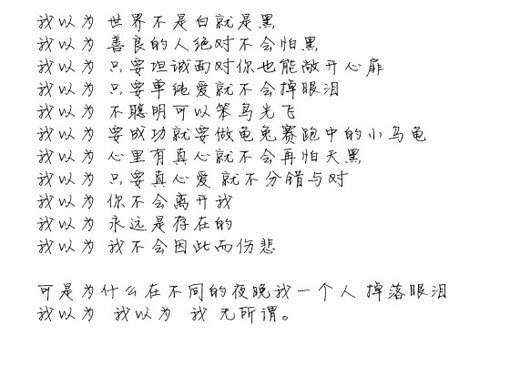 我以为 世界不是白就是黑
我以为 善良的人绝对不会怕黑
我以为 只要坦诚面对你也能敞开心扉
我以为 只要单纯爱就不会掉眼泪
我以为 不聪明可以笨鸟先飞
我以为 要成功就要做龟兔赛跑中的小乌龟
我以为 心里有真心就不会再怕天黑
我以为 只要真心爱 就不分错与对
我以为 你不会离开我
我以为 永远是存在的
我以为 我不会因此而伤悲
可是为什么在不同的夜晚我一个人 掉落眼泪
我以为 我以为 我 无所谓。